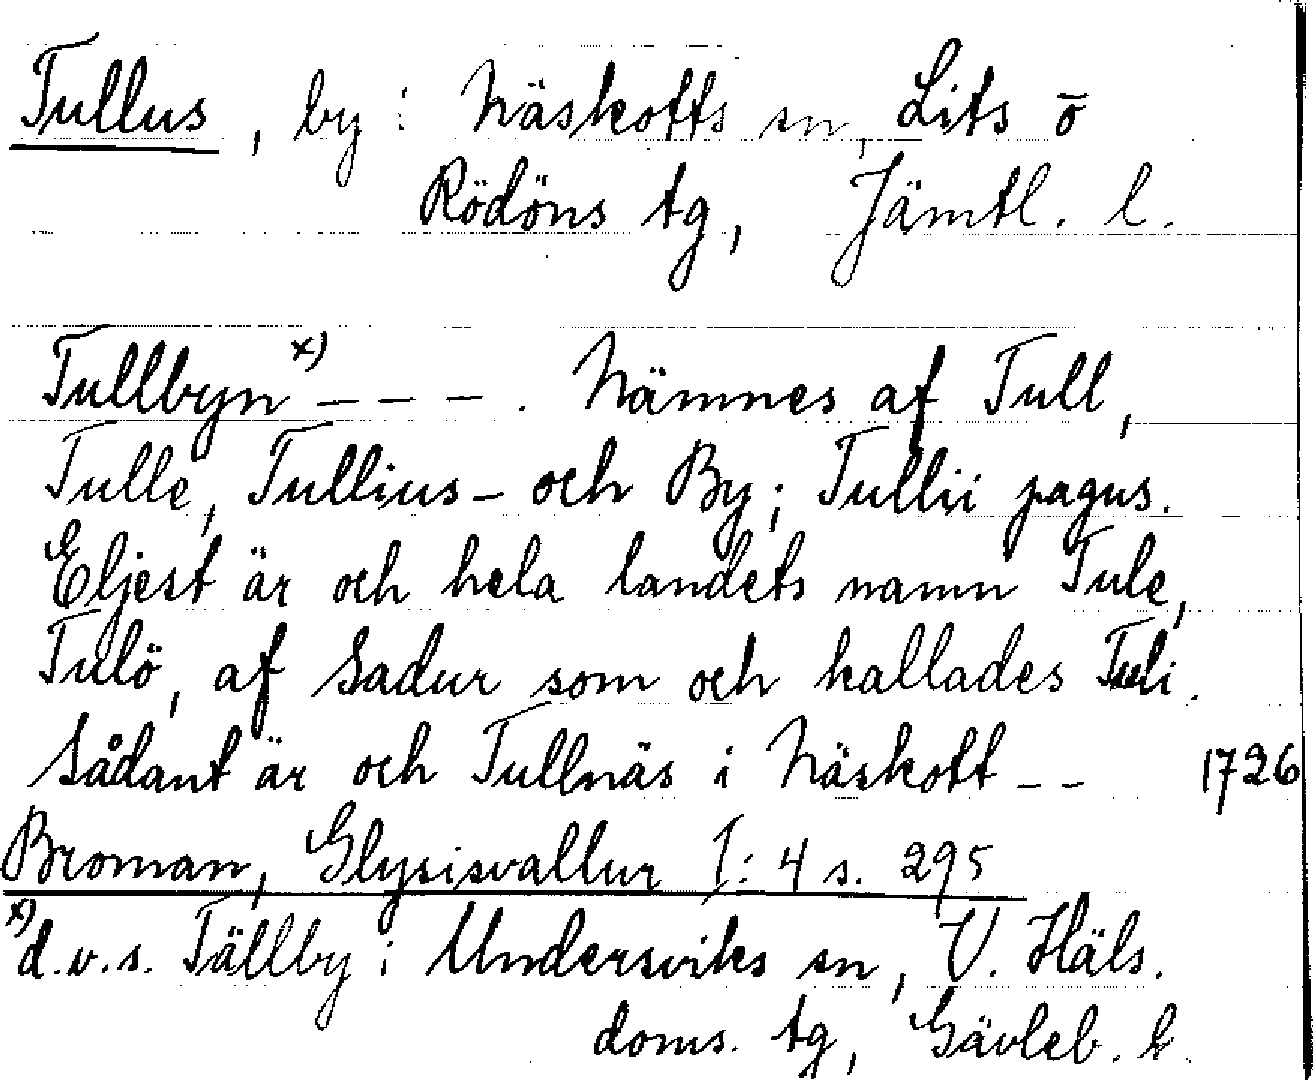 Tullus, by i Näskotts sn, Lits o
Rödöns tg, Jämtl. l.
Tullbyn x) – – – . Nämnes af Tull,
Tulle, Tullius – och By; Tullii pagus.
Eljest är och hela landets namn Tule,
Tulö, af Sadur som och kallades Tuli.
Sådant är och Tullnäs i Näskott – – 1726
Broman, Glysisvallur I: 4 s. 295
x) d.v.s. Tällby i Undersviks sn, V. Häls.
doms. tg, Gävleb. l.